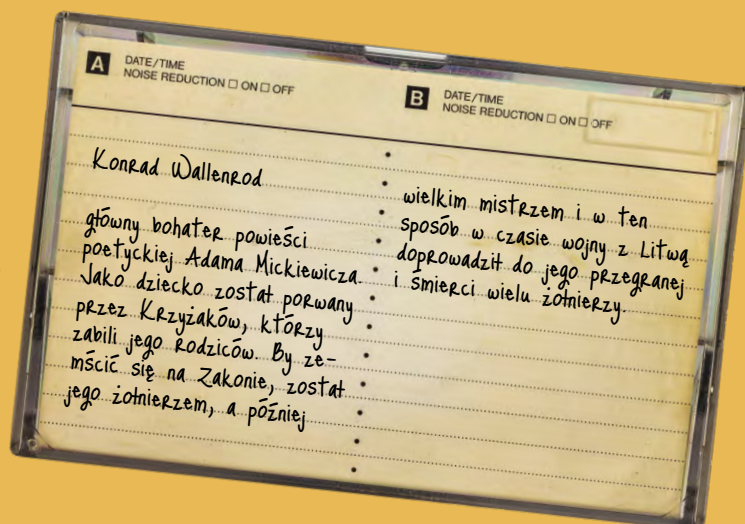 A
DATE/TIME
NOISE REDUCTION □ ON □ OFF
Konrad Wallenrod
główny bohater powieści
poetyckiej Adama Mickiewicza.
Jako dziecko został porwany
przez Krzyżaków, którzy
zabili jego rodziców. By ze-
mścić się na Zakonie, został
jego żołnierzem, a później
B
DATE/TIME
NOISE REDUCTION □ ON □ OFF
wielkim mistrzem i w ten
sposób w czasie wojny z Litwą
doprowadził do jego przegranej
i śmierci wielu żołnierzy.